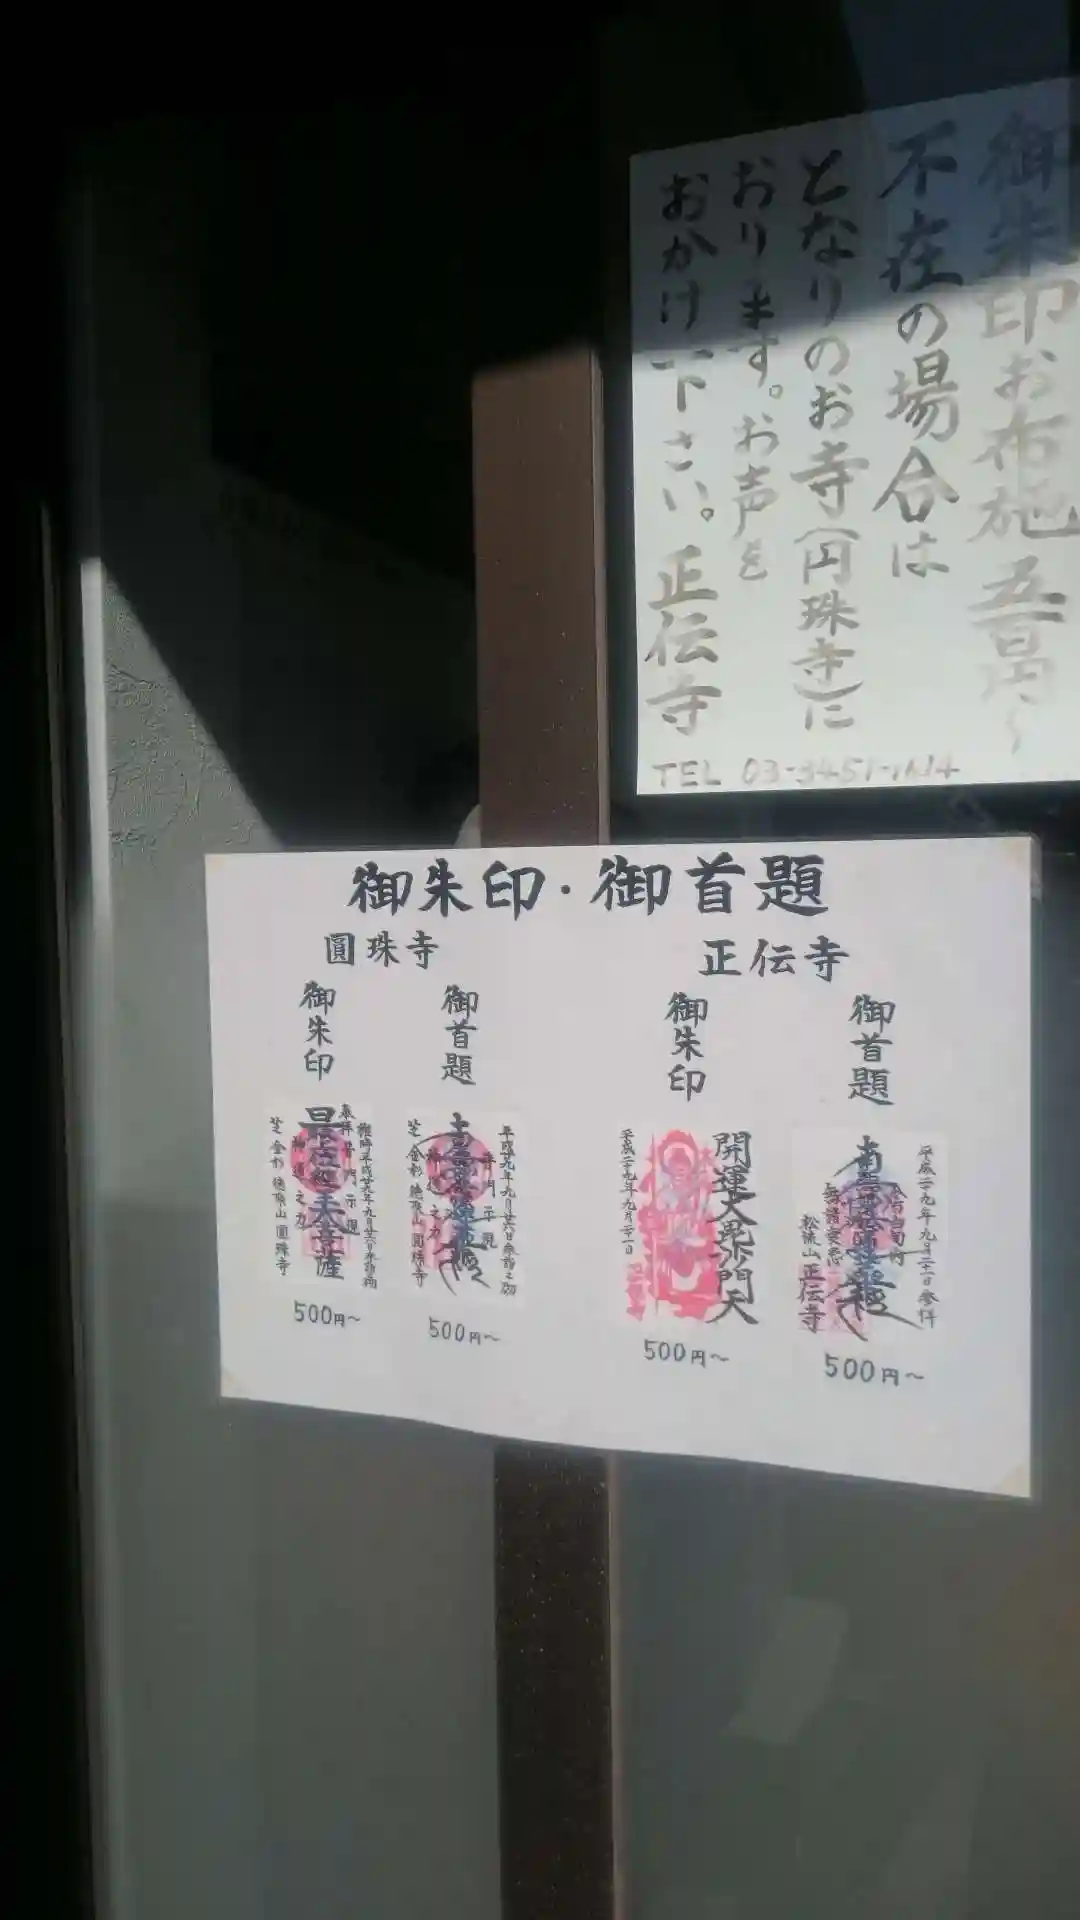 御朱印お布施五百円〜
不在の場合は
となりのお寺(円珠寺)に
おります。お声を
おかけ下さい。正伝寺
TEL 03-3451-1614
御朱印・御首題
圓珠寺
御朱印
500円〜
御首題
平成廿九年九月廿六日
芝金杉 徳原山 圓珠寺
500円〜
正伝寺
御朱印
開運大毘沙門天
平成二十九年九月二十一日
500円〜
御首題
平成二十九年九月二十一日参拝
松流山 正伝寺
500円〜